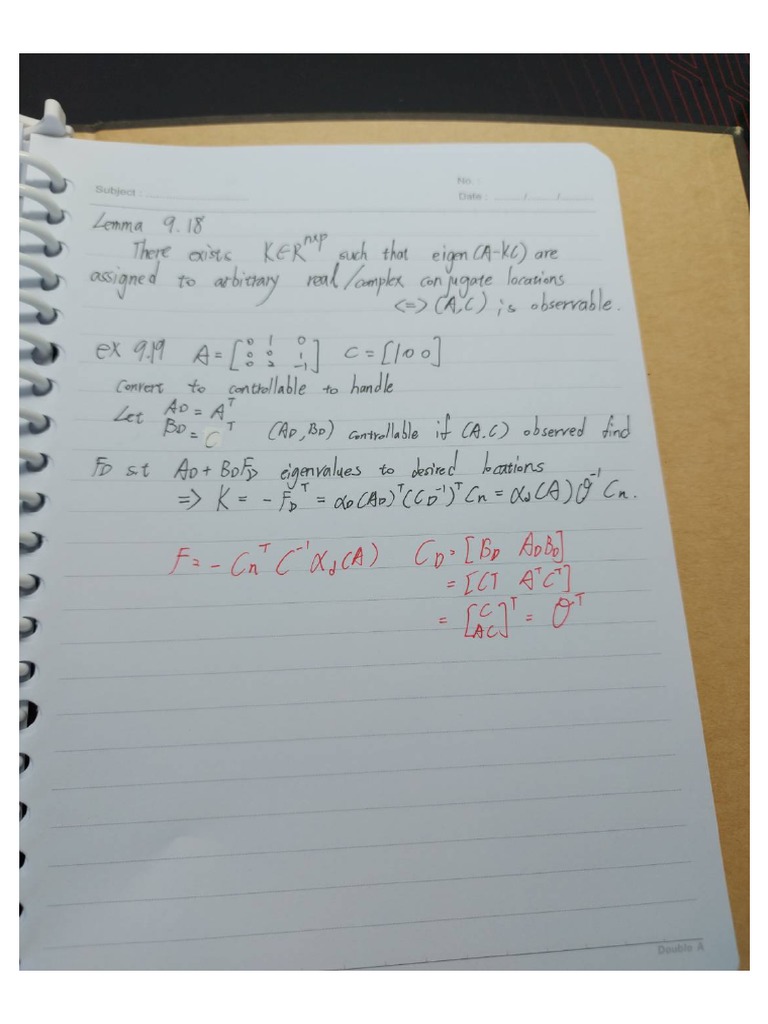 Subject :
No. :
Date : / /
Lemma 9.18
There exists K∈R^{n×p} such that eigen(A-KC) are
assigned to arbitrary real/complex conjugate locations
<=> (A,C) is observable.
ex 9.19 A = [0 1 0; 0 0 1; 0 2 -1] C = [1 0 0]
Convert to controllable to handle
Let A_D = A^T
B_D = C^T (A_D, B_D) controllable if (A.C) observed find
F_D s.t A_D + B_D F_D eigenvalues to desired locations
=> K = - F_D^T = α_D(A_D)^T (C_D^{-1})^T C_n = α_d(A) O^{-1} C_n.
F = - C_n^T C^{-1} α_d(A) C_D = [B_D A_D B_D]
= [CT A^T C^T]
= [C; AC]^T = O^T
Double A